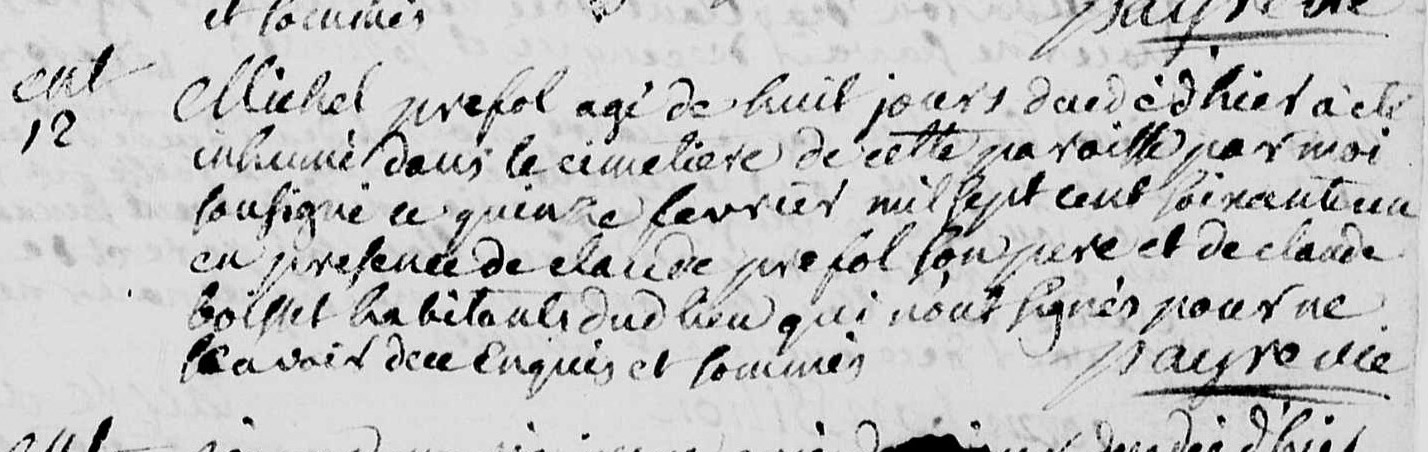 et sommés
ent
12
Michel prefol agé de huit jours decedé d'hier a eté
inhumé dans le cimetiere de cette paroisse par moi
sousigné ce quinze fevrier mil sept cent soixante un
en presence de claude prefol son pere et de claude
boisset habitants dud lieu qui n'ont signés pour ne
scavoir de ce enquis et sommés
payre vic